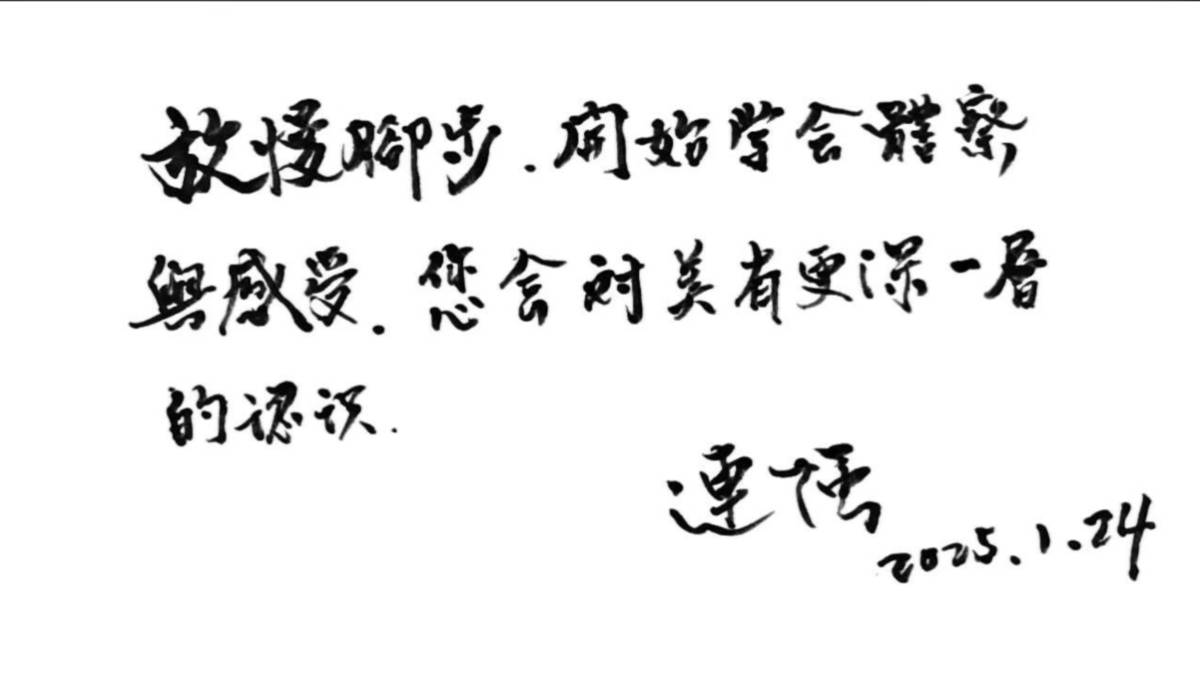 放慢腳步.開始学会體察
與感受.您会对美有更深一層
的認识.
連
2025.1.24